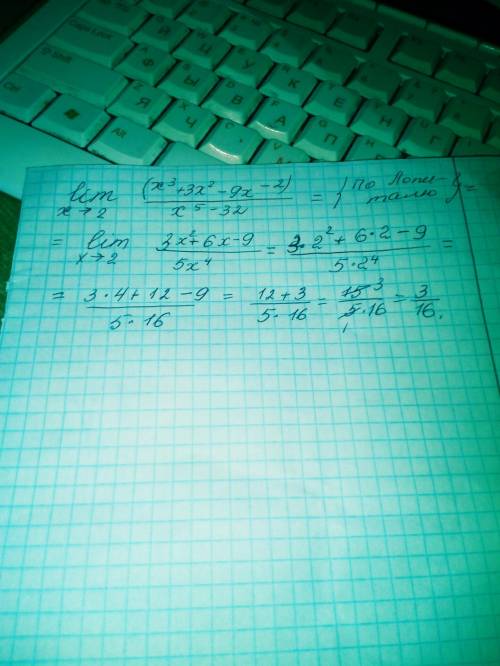 Caps Lock
Shift
Ctrl
Alt
Й Ц У К
Ф Ы В А П Р
Я Ч С М И
lim x→2 (x³+3x²-9x-2)/(x⁵-32) = {По Лопиталю} =
= lim x→2 (3x²+6x-9)/(5x⁴) = (3·2²+6·2-9)/(5·2⁴) =
= (3·4+12-9)/(5·16) = (12+3)/(5·16) = (15 3)/(5 1·16) = 3/16.